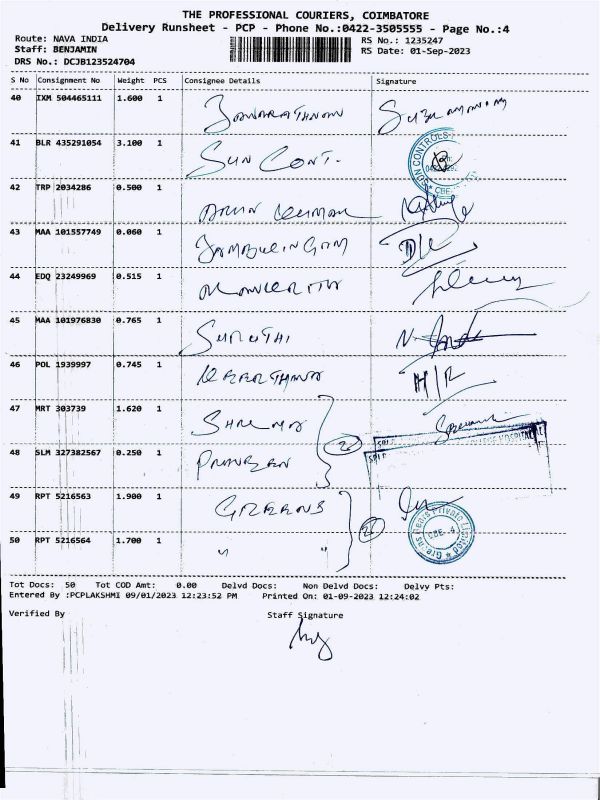 THE PROFESSIONAL COURIERS, COIMBATORE
Delivery Runsheet - PCP - Phone No.:0422-3505555 - Page No.:4
Route: NAVA INDIA
RS No.: 1235247
Staff: BENJAMIN
RS Date: 01-Sep-2023
DRS No.: DCJB123524704
S No Consignment No Weight PCS Consignee Details Signature
40 IXM 504465111 1.600 1
41 BLR 435291054 3.100 1 SUN CONT.
SUN CONTROLS
42 TRP 2034286 0.500 1 ARUN KUMAR
43 MAA 101557749 0.060 1 JAMBULINGAM
44 EDQ 23249969 0.515 1
45 MAA 101976830 0.765 1 SURUTHI
46 POL 1939997 0.745 1 KEERTHANA H/R
47 MRT 303739 1.620 1
48 SLM 327382567 0.250 1 PRAVEEN
49 RPT 5216563 1.900 1 GREENS
Private Limited
CBE - 4
50 RPT 5216564 1.700 1 " "
Tot Docs: 50 Tot COD Amt: 0.00 Delvd Docs: Non Delvd Docs: Delvy Pts:
Entered By :PCPLAKSHMI 09/01/2023 12:23:52 PM Printed On: 01-09-2023 12:24:02
Verified By Staff Signature